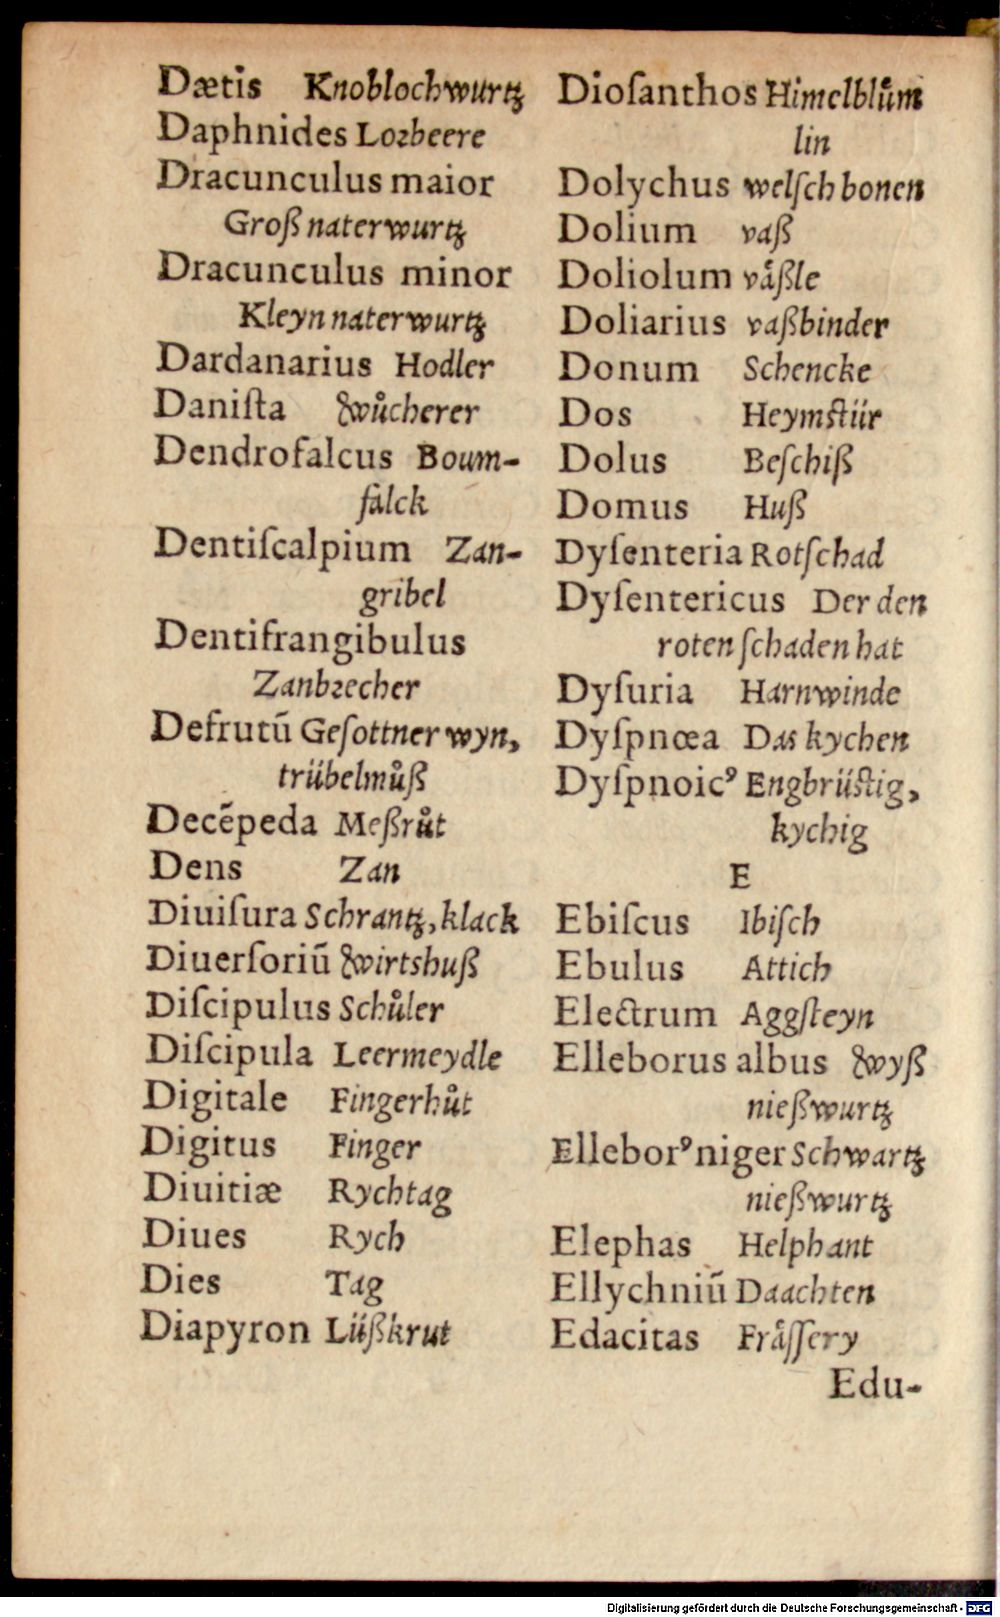 Dætis Knoblochwurtz
Daphnides Lorbeere
Dracunculus maior
Groß naterwurtz
Dracunculus minor
Kleyn naterwurtz
Dardanarius Hodler
Daniſta Wůcherer
Dendrofalcus Boum-
falck
Dentiſcalpium Zan-
gribel
Dentifrangibulus
Zanbꝛecher
Defrutū Geſottner wyn,
trübelmůß
Decēpeda Meßrůt
Dens Zan
Diuiſura Schrantz, klack
Diuerſoriū Wirtshuß
Diſcipulus Schůler
Diſcipula Leermeydle
Digitale Fingerhůt
Digitus Finger
Diuitiæ Rychtag
Diues Rych
Dies Tag
Diapyron Lüßkrut
Dioſanthos Himelblům
lin
Dolychus welſch bonen
Dolium vaß
Doliolum vaͤßle
Doliarius vaßbinder
Donum Schencke
Dos Heymſtür
Dolus Beſchiß
Domus Huß
Dyſenteria Rotſchad
Dyſentericus Der den
roten ſchaden hat
Dyſuria Harnwinde
Dyſpnœa Das kychen
Dyſpnoicꝰ Engbrüſtig,
kychig
E
Ebiſcus Ibiſch
Ebulus Attich
Electrum Aggſteyn
Elleborus albus Wyß
nießwurtz
Elleborꝰ niger Schwartz
nießwurtz
Elephas Helphant
Ellychniū Daachten
Edacitas Fraͤſſery
Edu-
Digitalisierung gefördert durch die Deutsche Forschungsgemeinschaft - DFG